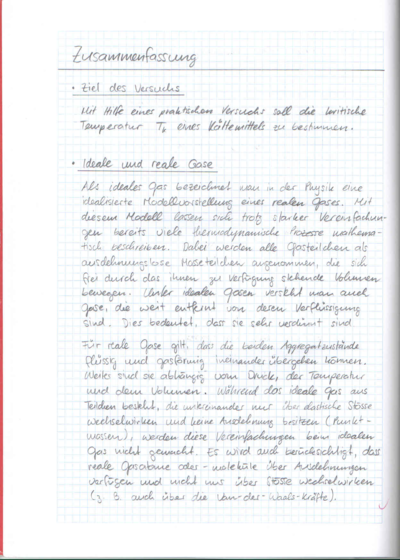 Zusammenfassung
• Ziel des Versuchs
Mit Hilfe eines praktischen Versuchs soll die kritische
Temperatur Tk eines Kältemittels zu bestimmen.
• Ideale und reale Gase
Als ideales Gas bezeichnet man in der Physik eine
idealisierte Modellvorstellung eines realen Gases. Mit
diesem Modell lassen sich trotz starker Vereinfachun-
gen bereits viele thermodynamische Prozesse mathema-
tisch beschreiben. Dabei werden alle Gasteilchen als
ausdehnungslose Masseteilchen angenommen, die sich
frei durch das ihnen zu Verfügung stehende Volumen
bewegen. Unter idealen Gasen versteht man auch
Gase, die weit entfernt von deren Verflüssigung
sind. Dies bedeutet, dass sie sehr verdünnt sind
Für reale Gase gilt, dass die beiden Aggregatzustände
flüssig und gasförmig ineinander übergehen können.
Weiter sind sie abhängig vom Druck, der Temperatur
und dem Volumen. Während das ideale Gas aus
Teilchen besteht, die untereinander nur über elastische Stösse
wechselwirken und keine Ausdehnung besitzen (Punkt-
massen), werden diese Vereinfachungen beim idealen
Gas nicht gemacht. Es wird auch berücksichtigt, dass
reale Gasatome oder -moleküle über Ausdehnungen
verfügen und nicht nur über Stösse wechselwirken
(z. B. auch über die Van-der-Waals-Kräfte).